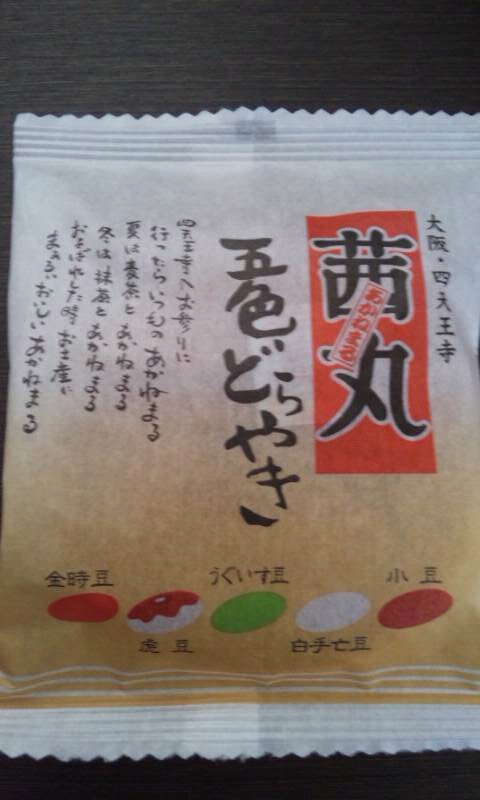 大阪・四天王寺
茜丸
あかねまる
五色どらやき
四天王寺へお参りに
行ったらいつものあかねまる
夏は麦茶とあかねまる
冬は抹茶とあかねまる
およばれした時お土産に
まぁるいおいしいあかねまる
金時豆
虎豆
うぐいす豆
白手亡豆
小豆